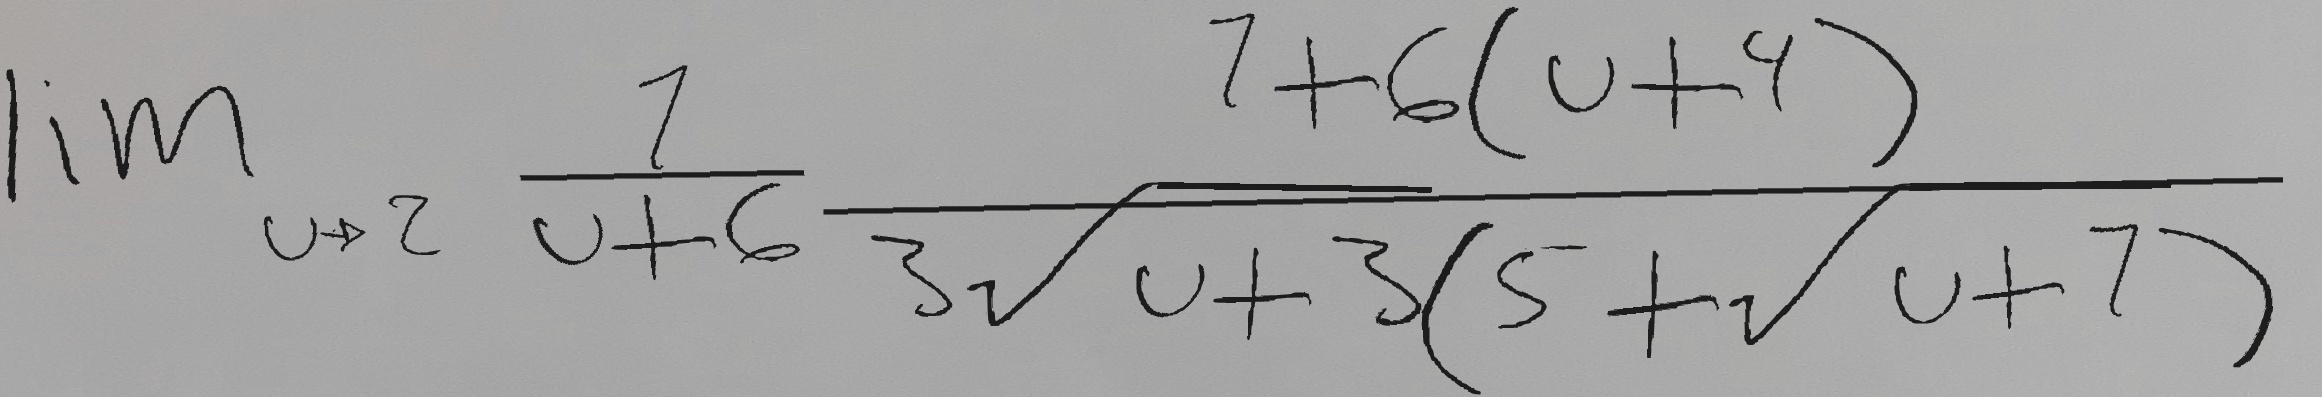 \lim_{u \to 2} \frac{7}{u+6} \frac{7+6(u+4)}{3\sqrt{u+3}(5+\sqrt{u+7})}